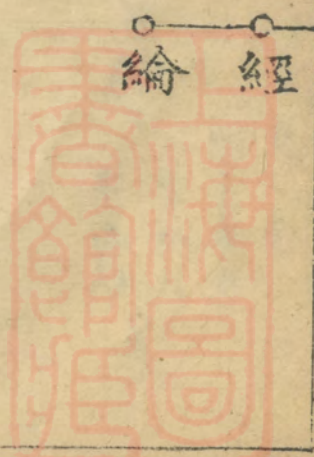 經
綸
上海圖
書館藏